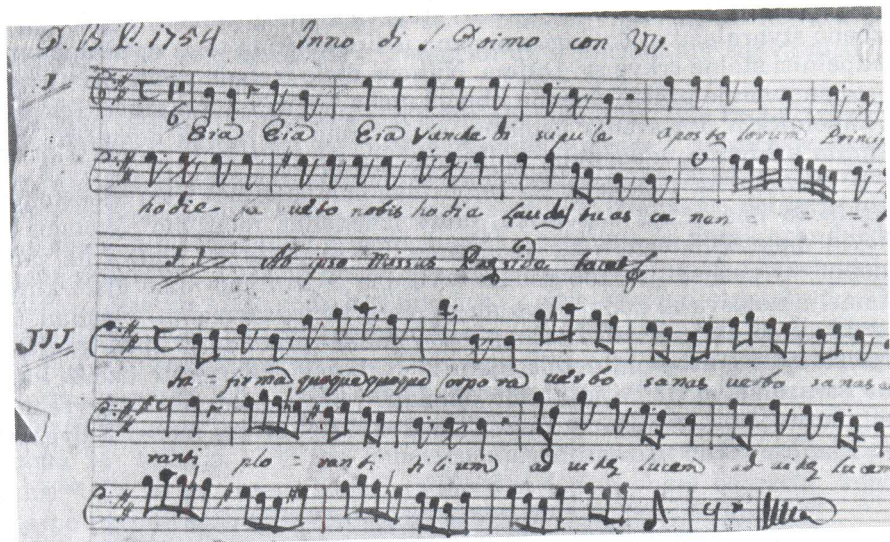 G. B. P. 1754 Inno di S. Doimo con VV.
I
Eia Eia Eia Vancte di sipula apostolorum Princip
hodie fa uebo nobis hodie Laudes tuas ca nan = = =
II Ab ipso Missus Preside tacet
III
In = firma quoque quoque Corpora uerbo sanas uerbo sanas
ranti plo = ranti filium ad uitę lucem ad uitę lucem